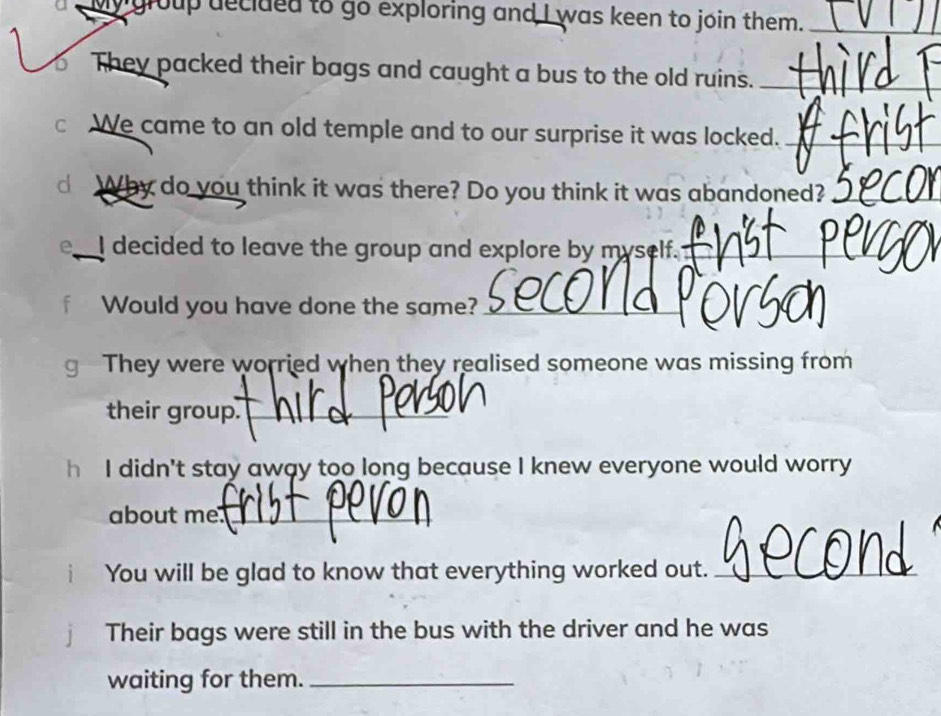 a My group decided to go exploring and I was keen to join them.
b They packed their bags and caught a bus to the old ruins. third P
c We came to an old temple and to our surprise it was locked. frist
d Why do you think it was there? Do you think it was abandoned? Secon
e I decided to leave the group and explore by myself. frist person
f Would you have done the same? second Porson
g They were worried when they realised someone was missing from
their group. third Person
h I didn't stay away too long because I knew everyone would worry
about me. frist pevon
i You will be glad to know that everything worked out. second
j Their bags were still in the bus with the driver and he was
waiting for them.